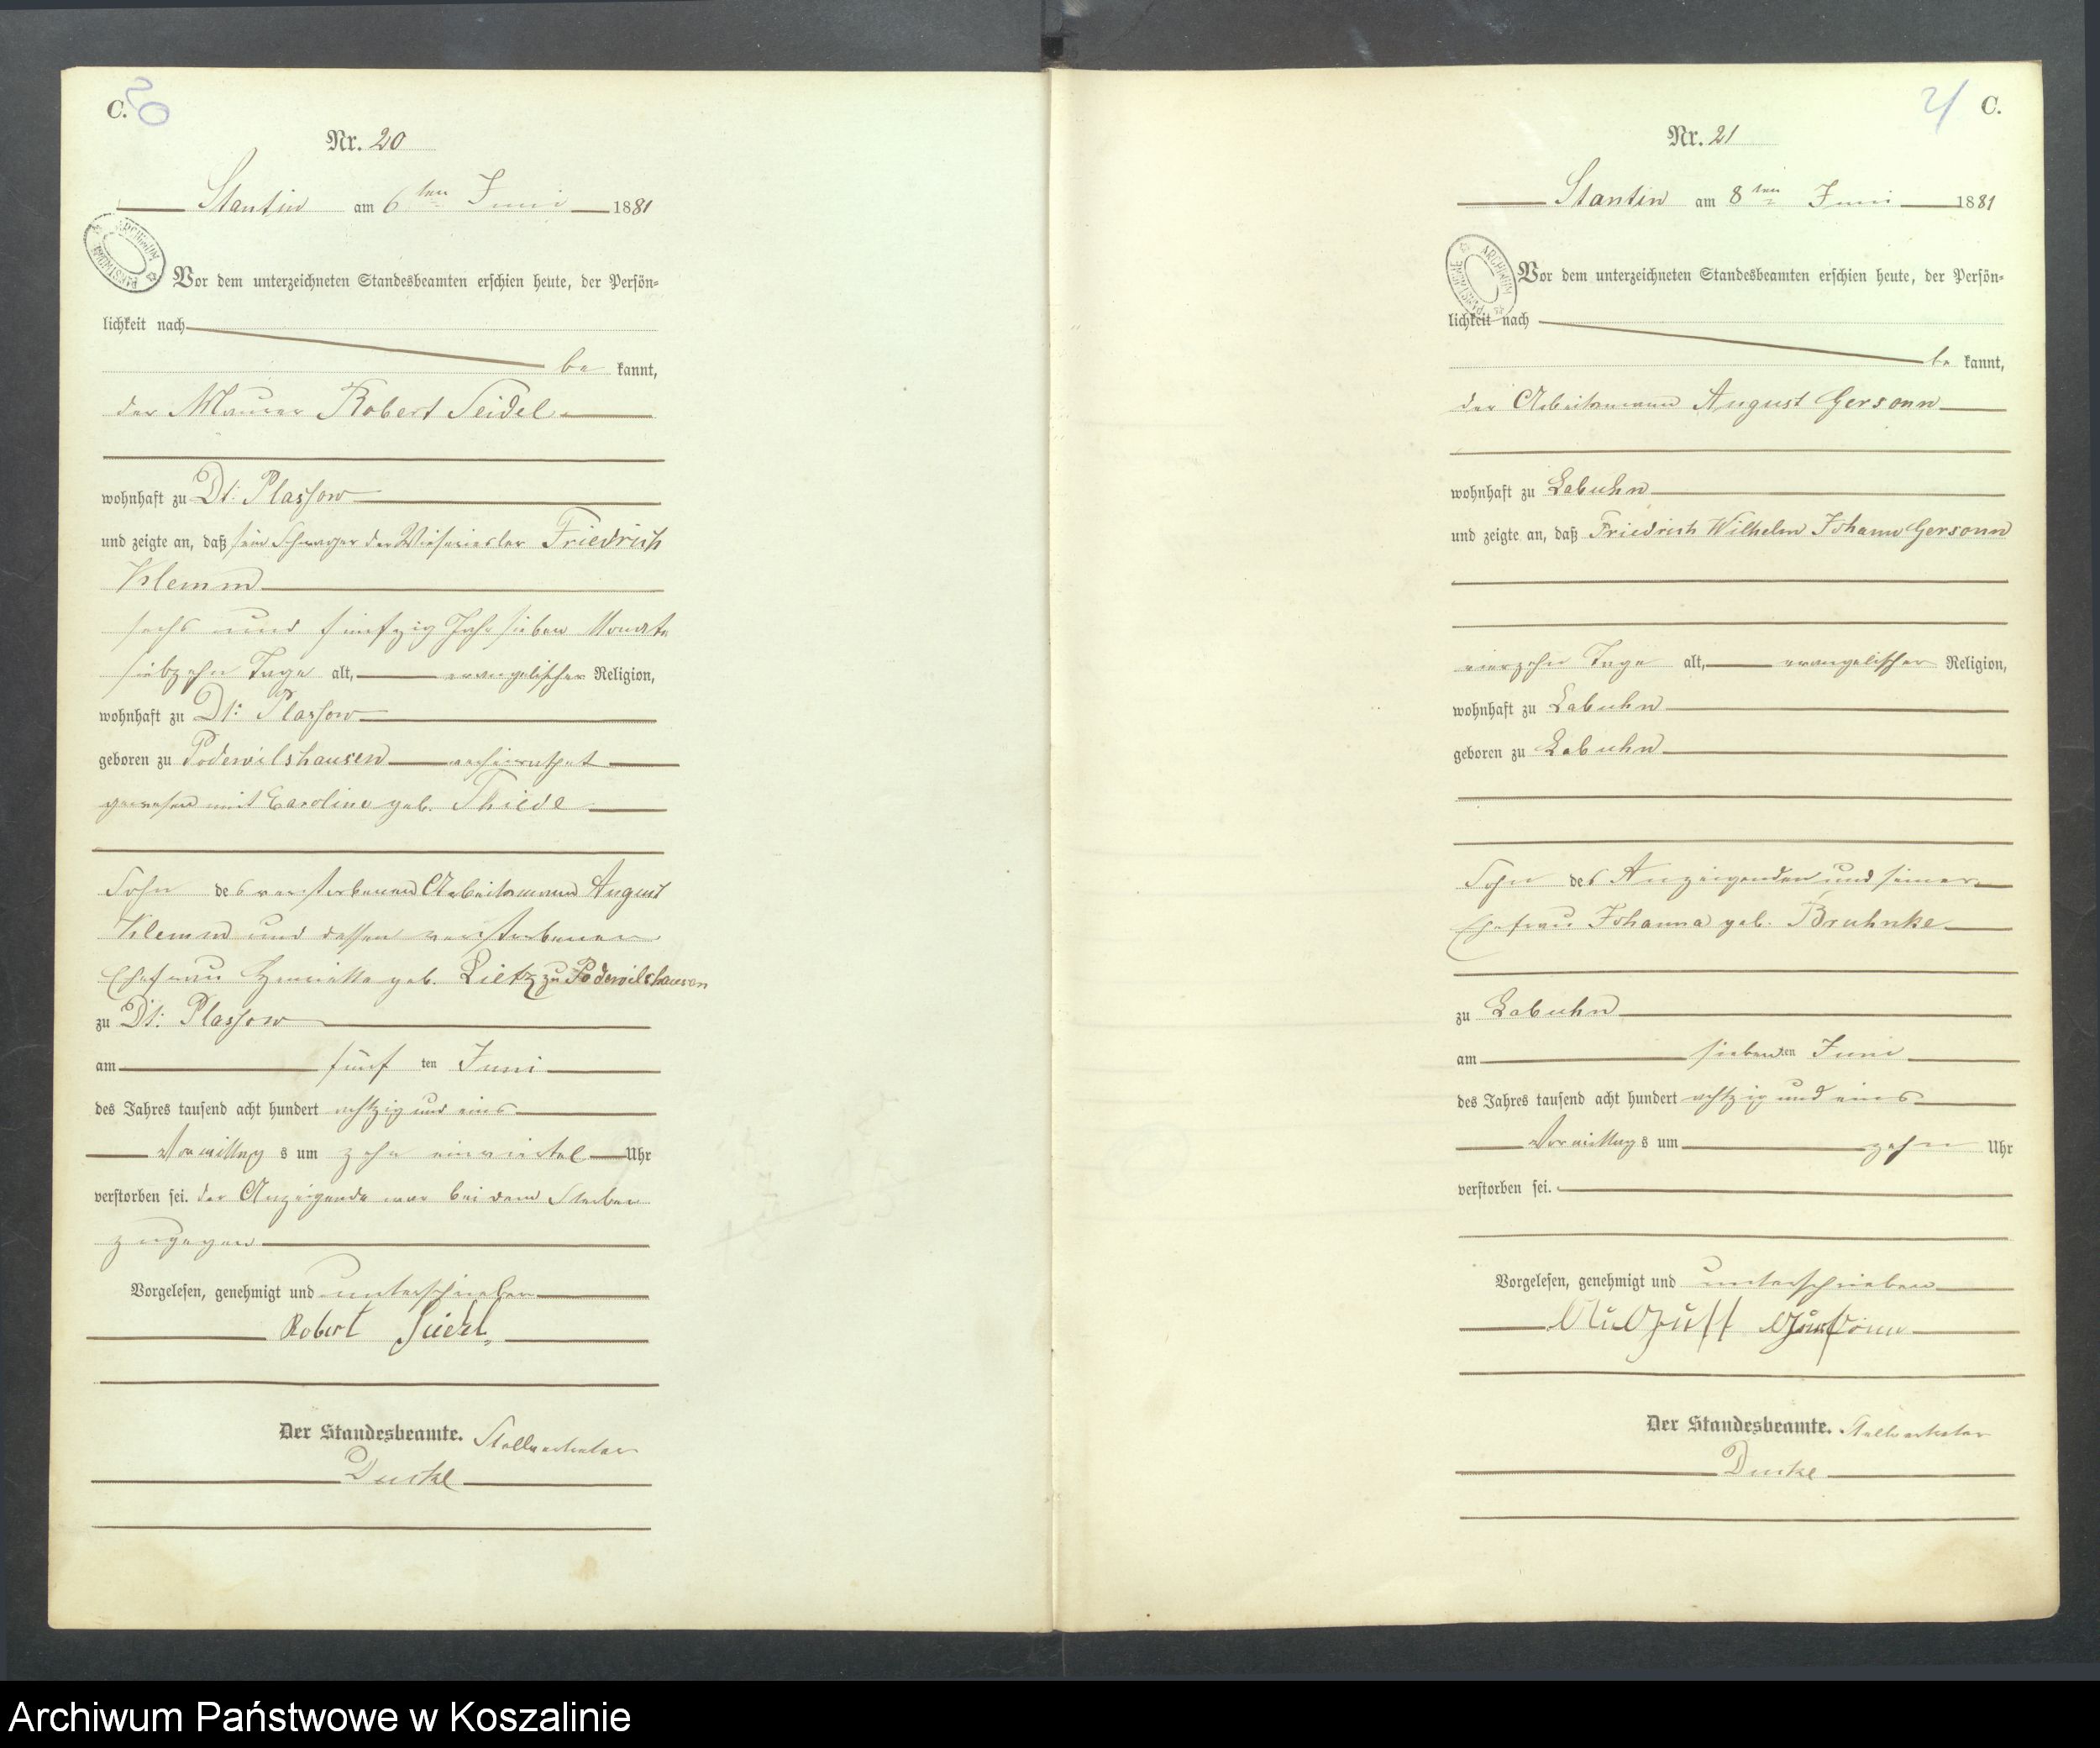 C. 20
Nr. 20
Stantin am 6ten Juni 1881
ARCHIWUM PAŃSTWOWE
Vor dem unterzeichneten Standesbeamten erschien heute, der Persön-
lichkeit nach
be kannt,
der Maurer Robert Seidel
wohnhaft zu Dt: Plassow
und zeigte an, daß sein Schwager der Friedrich
Klemm
sechs und fünfzig Jahr sieben Monate
siebzehn Tage alt, evangelischer Religion,
wohnhaft zu Dt: Plassow
geboren zu Podewilshausen verheirathet
gewesen mit Caroline geb. Thiede
Sohn des verstorbenen Arbeitsmann August
Klemm und dessen verstorbenen
Ehefrau Henriette geb. Lietz zu Podewilshausen
zu Dt: Plassow
am fünf ten Juni
des Jahres tausend acht hundert achtzig und eins
Vormittag s um zehn einviertel Uhr
verstorben sei. der Anzeigende war bei dem Sterben
zugegen
Vorgelesen, genehmigt und unterschrieben
Robert Seidel
Der Standesbeamte. Stellvertreter
21 C.
Nr. 21
Stantin am 8ten Juni 1881
ARCHIWUM PAŃSTWOWE
Vor dem unterzeichneten Standesbeamten erschien heute, der Persön-
lichkeit nach
be kannt,
der Arbeitsmann August Gersonn
wohnhaft zu Labuhn
und zeigte an, daß Friedrich Wilhelm Johann Gersonn
vierzehn Tage alt, evangelischer Religion,
wohnhaft zu Labuhn
geboren zu Labuhn
Sohn des Anzeigenden und seiner
Ehefrau Johanna geb. Bruhnke
zu Labuhn
am siebenten Juni
des Jahres tausend acht hundert achtzig und eins
Vormittag s um zehn Uhr
verstorben sei.
Vorgelesen, genehmigt und unterschrieben
August Gersonn
Der Standesbeamte. Stellvertreter
Archiwum Państwowe w Koszalinie